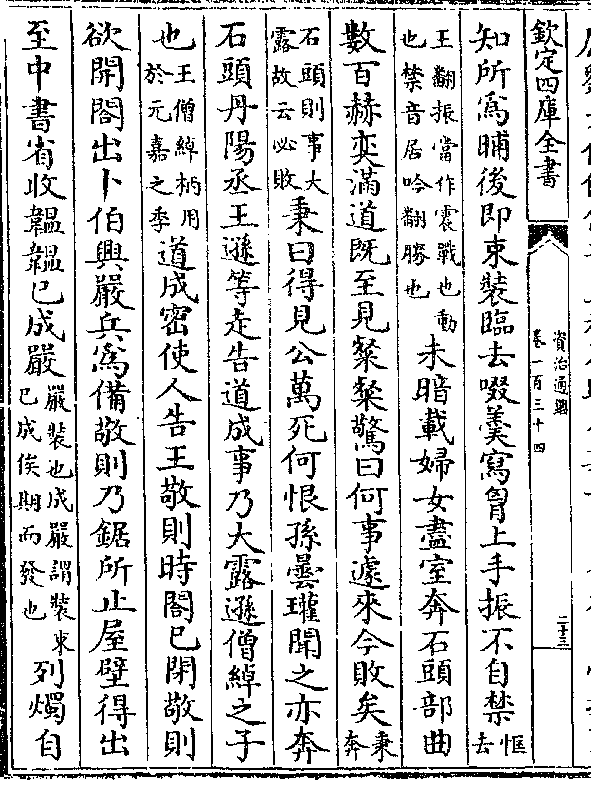 欽定四庫全書
資治通鑑
卷一百三十四
二十三
知所為晡後即束裝臨去啜羮寫胷上手振不自禁恇去
王翻振當作震戰也動也禁音居吟翻勝也未暗載婦女盡室奔石頭部曲
數百赫奕滿道既至見粲粲驚曰何事遽來今敗矣秉奔
石頭則事大露故云必敗秉曰得見公萬死何恨孫曇瓘聞之亦奔
石頭丹陽丞王遜等走告道成事乃大露遜僧綽之子
也王僧綽柄用於元嘉之季道成密使人告王敬則時閤已閉敬則
欲開閤出卜伯興嚴兵為備敬則乃鋸所止屋壁得出
至中書省收韞韞已成嚴嚴裝也成嚴謂裝束已成俟期而發也列燭自